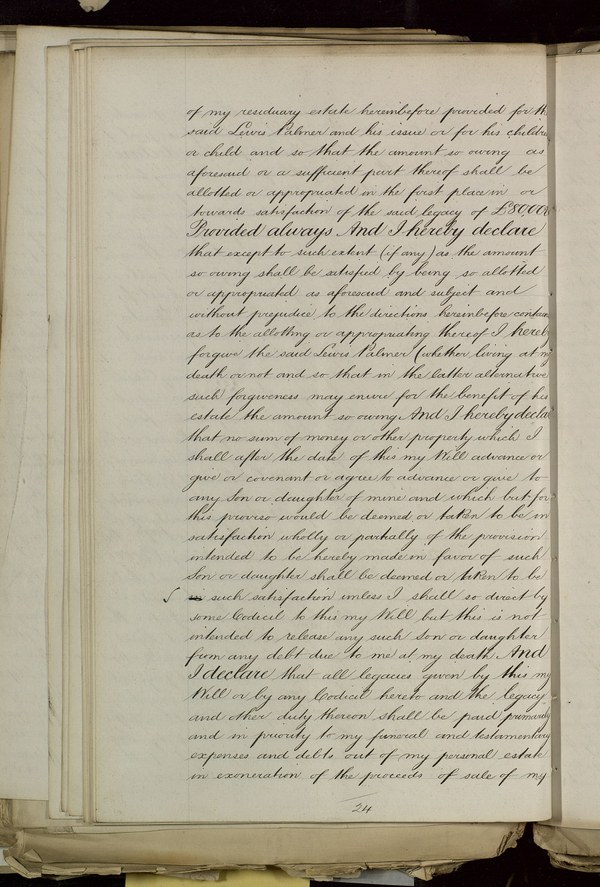 of my residuary estate hereinbefore provided for th
said Lewis Palmer and his issue or for his childre
or child and so that the amount so owing as
aforesaid or a sufficient part thereof shall be
allotted or appropriated in the first place in or
towards satisfaction of the said legacy of £80,000
Provided always And I hereby declare
that except to such extent (if any) as the amount
so owing shall be satisfied by being so allotted
or appropriated as aforesaid and subject and
without prejudice to the directions hereinbefore contain
as to the allotting or appropriating thereof I hereb
forgive the said Lewis Palmer (whether living at my
death or not and so that in the latter alternative
such forgiveness may enure for the benefit of his
estate the amount so owing And I hereby declar
that no sum of money or other property which I
shall after the date of this my Will advance or
give or covenant or agree to advance or give to
any Son or daughter of mine and which but for
this proviso would be deemed or taken to be in
satisfaction wholly or partially of the provision
intended to be hereby made in favor of such
Son or daughter shall be deemed or taken to be
such satisfaction unless I shall so direct by
some Codicil to this my Will but this is not
intended to release any such Son or daughter
from any debt due to me at my death And
I declare that all legacies given by this my
Will or by any Codicil hereto and the legacy
and other duty thereon shall be paid primarily
and in priority to my funeral and testamentary
expenses and debts out of my personal estate
in exoneration of the proceeds of sale of my
24